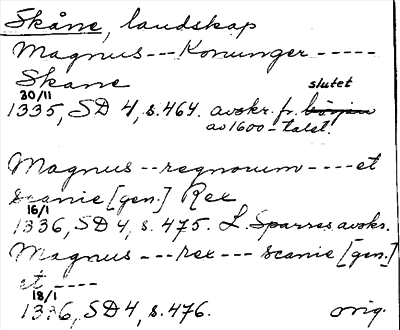 Skåne, landskap
Magnus --- Konunger -----
Skane
30/11
1335, SD 4, s. 464. avskr. fr. början slutet
av 1600-talet.
Magnus -- regnorum ---- et
scanie [gen.] Rex
16/1
1336, SD 4, s. 475. L. Sparres avskr.
Magnus --- rex --- scanie [gen.]
et ----
18/1
1336, SD 4, s. 476. orig.